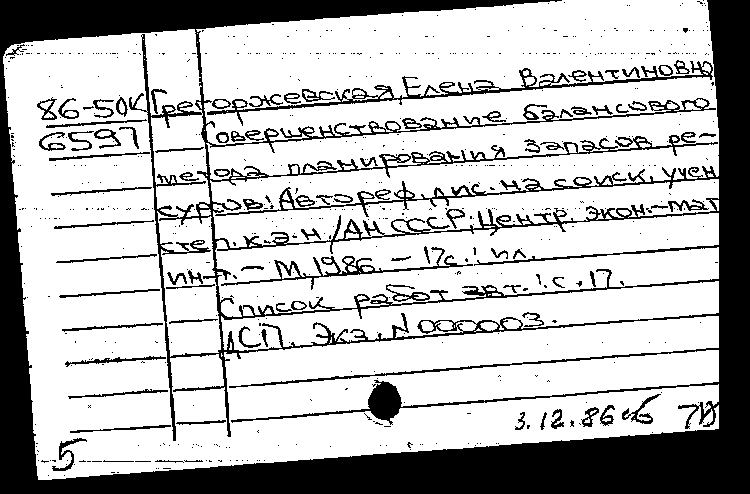 86-50К Грегоржевская, Елена Валентиновна
6597 Совершенствование балансового
метода планирования запасов ре-
сурсов: Автореф. дис. на соиск. учен
степ. к.э.н. / АН СССР; Центр. экон.-мат
ин-т. - М., 1986. - 17с.: ил.
Список работ авт.: с. 17.
ДСП. Экз. N 000003.
3.12.86
5